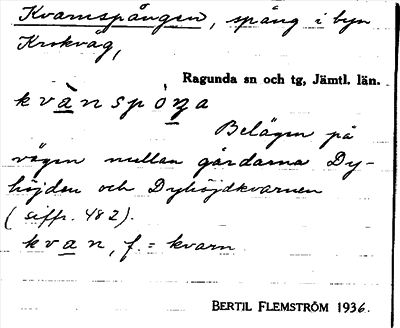 Kvarnspången, spång i byn
Krokvåg,
Ragunda sn och tg, Jämtl. län.
kvànspòŋa
Belägen på
vägen mellan gårdarna Dy-
höjden och Dyhöjdkvarnen
(siffr. 482).
kvan, f. = kvarn
BERTIL FLEMSTRÖM 1936.